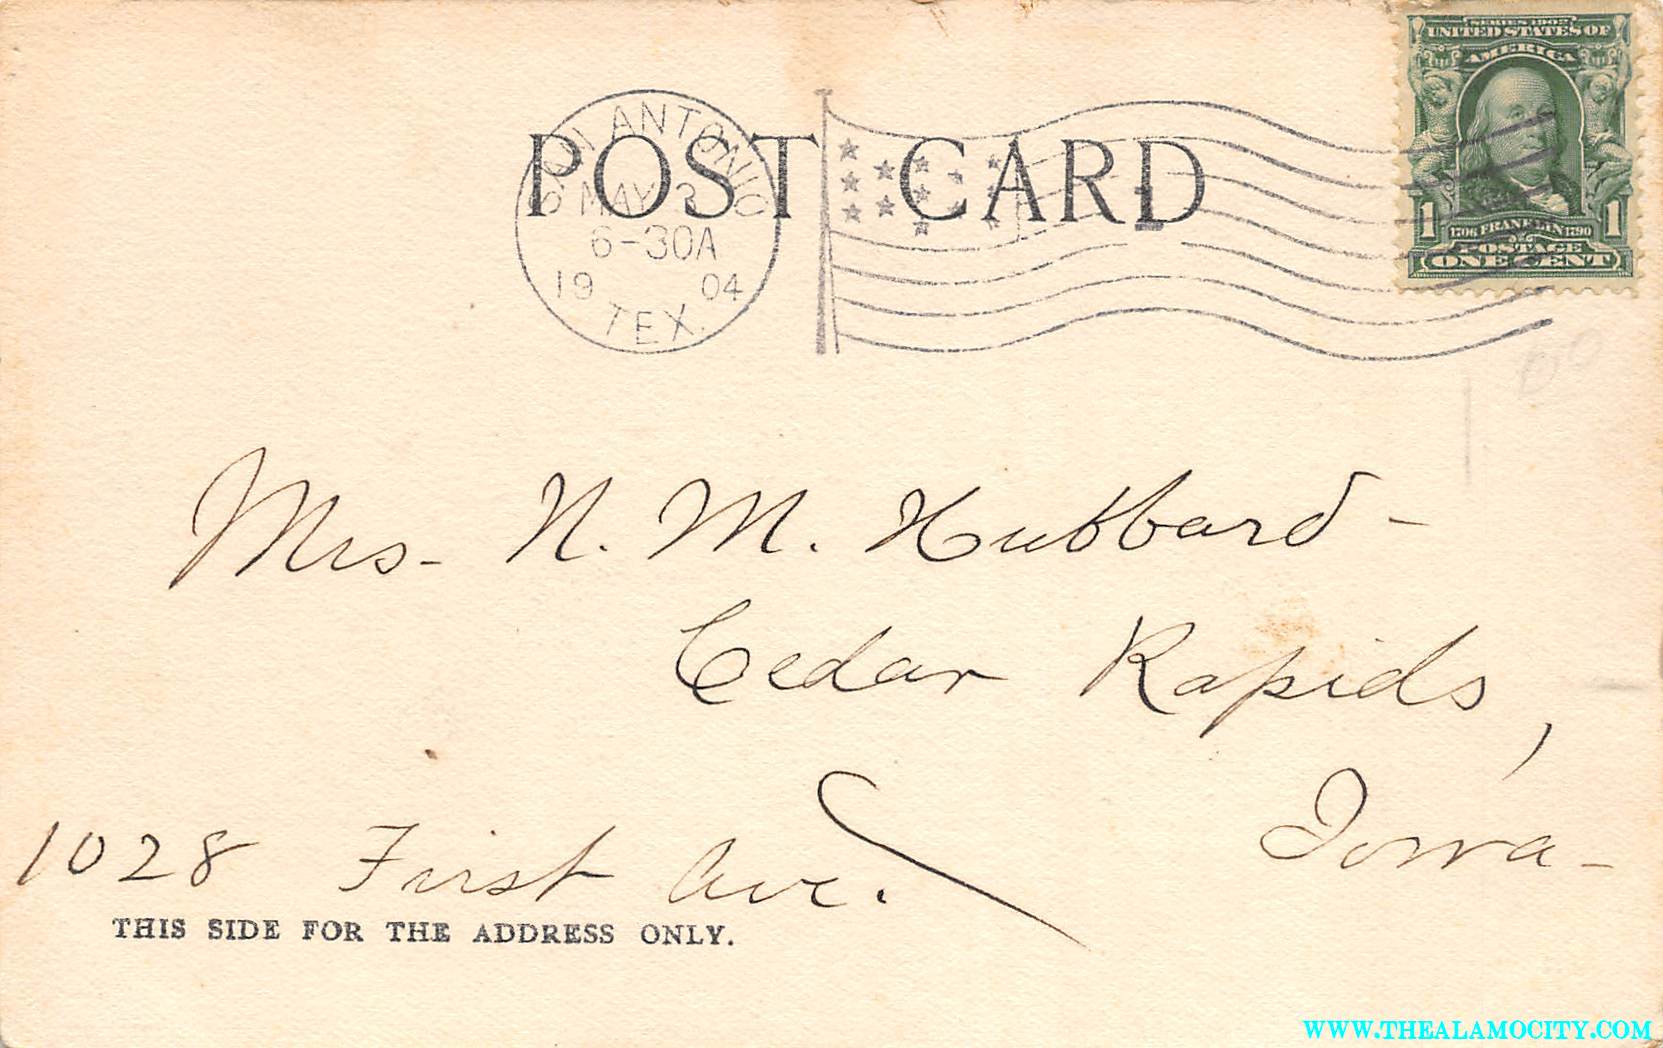 SERIES 1902
UNITED STATES OF
AMERICA
1 1706 FRANKLIN 1790 1
POSTAGE
ONE CENT
SAN ANTONIO
MAY 3
6-30A
1904
TEX.
POST CARD
Mrs- N. M. Hubbard-
Cedar Rapids,
Iowa-
1028 First Ave.
THIS SIDE FOR THE ADDRESS ONLY.
WWW.THEALAMOCITY.COM